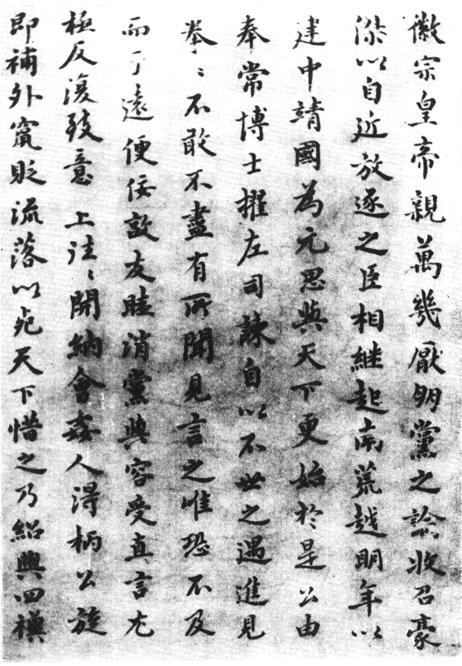 徽宗皇帝親萬幾厭朋黨之論收召豪
傑以自近放逐之臣相繼起南荒越明年以
建中靖國為元思與天下更始於是公由
奉常博士擢左司諫自以不世之遇進見
拳〻不敢不盡有所聞見言之唯恐不及
而于遠便佞敦友睦消黨與容受直言尤
極反復致意 上往〻開納會姦人得柄公旋
即補外竄貶流落以死天下惜之乃紹興四禩